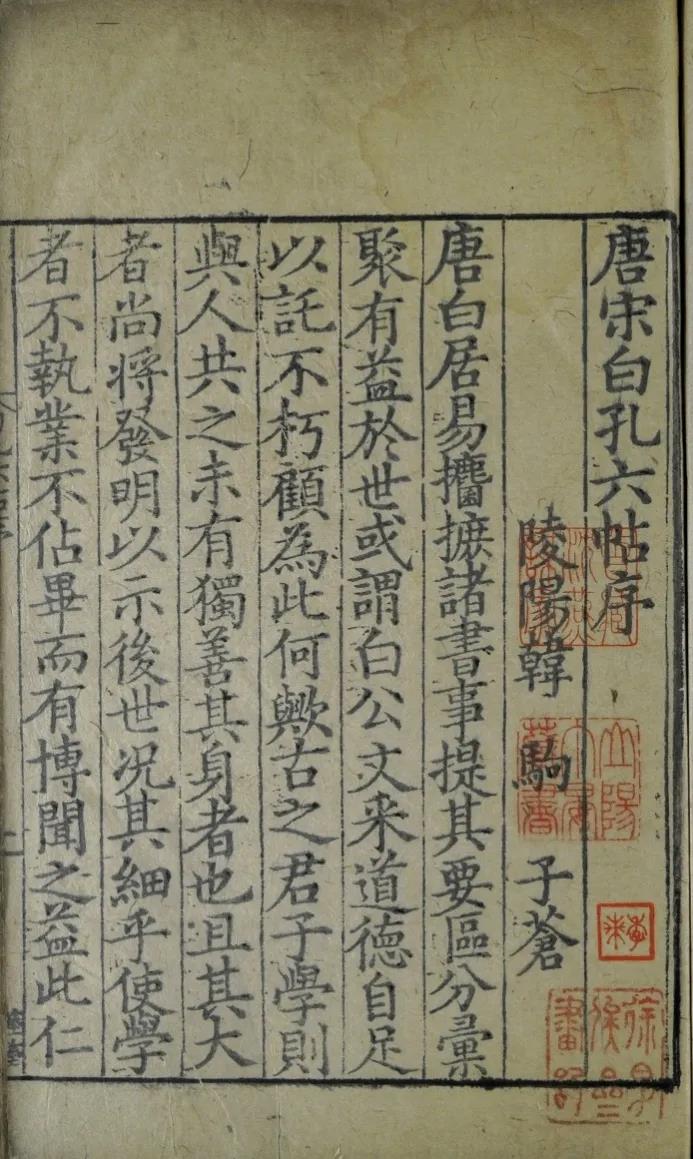 唐宋白孔六帖序
陵陽韓 駒 子蒼
唐白居易攟摭諸書事提其要區分彙
聚有益於世或謂白公文采道德自足
以託不朽顧為此何歟古之君子學則
與人共之未有獨善其身者也且其大
者尚將發明以示後世况其細乎使學
者不執業不佔畢而有博聞之益此仁